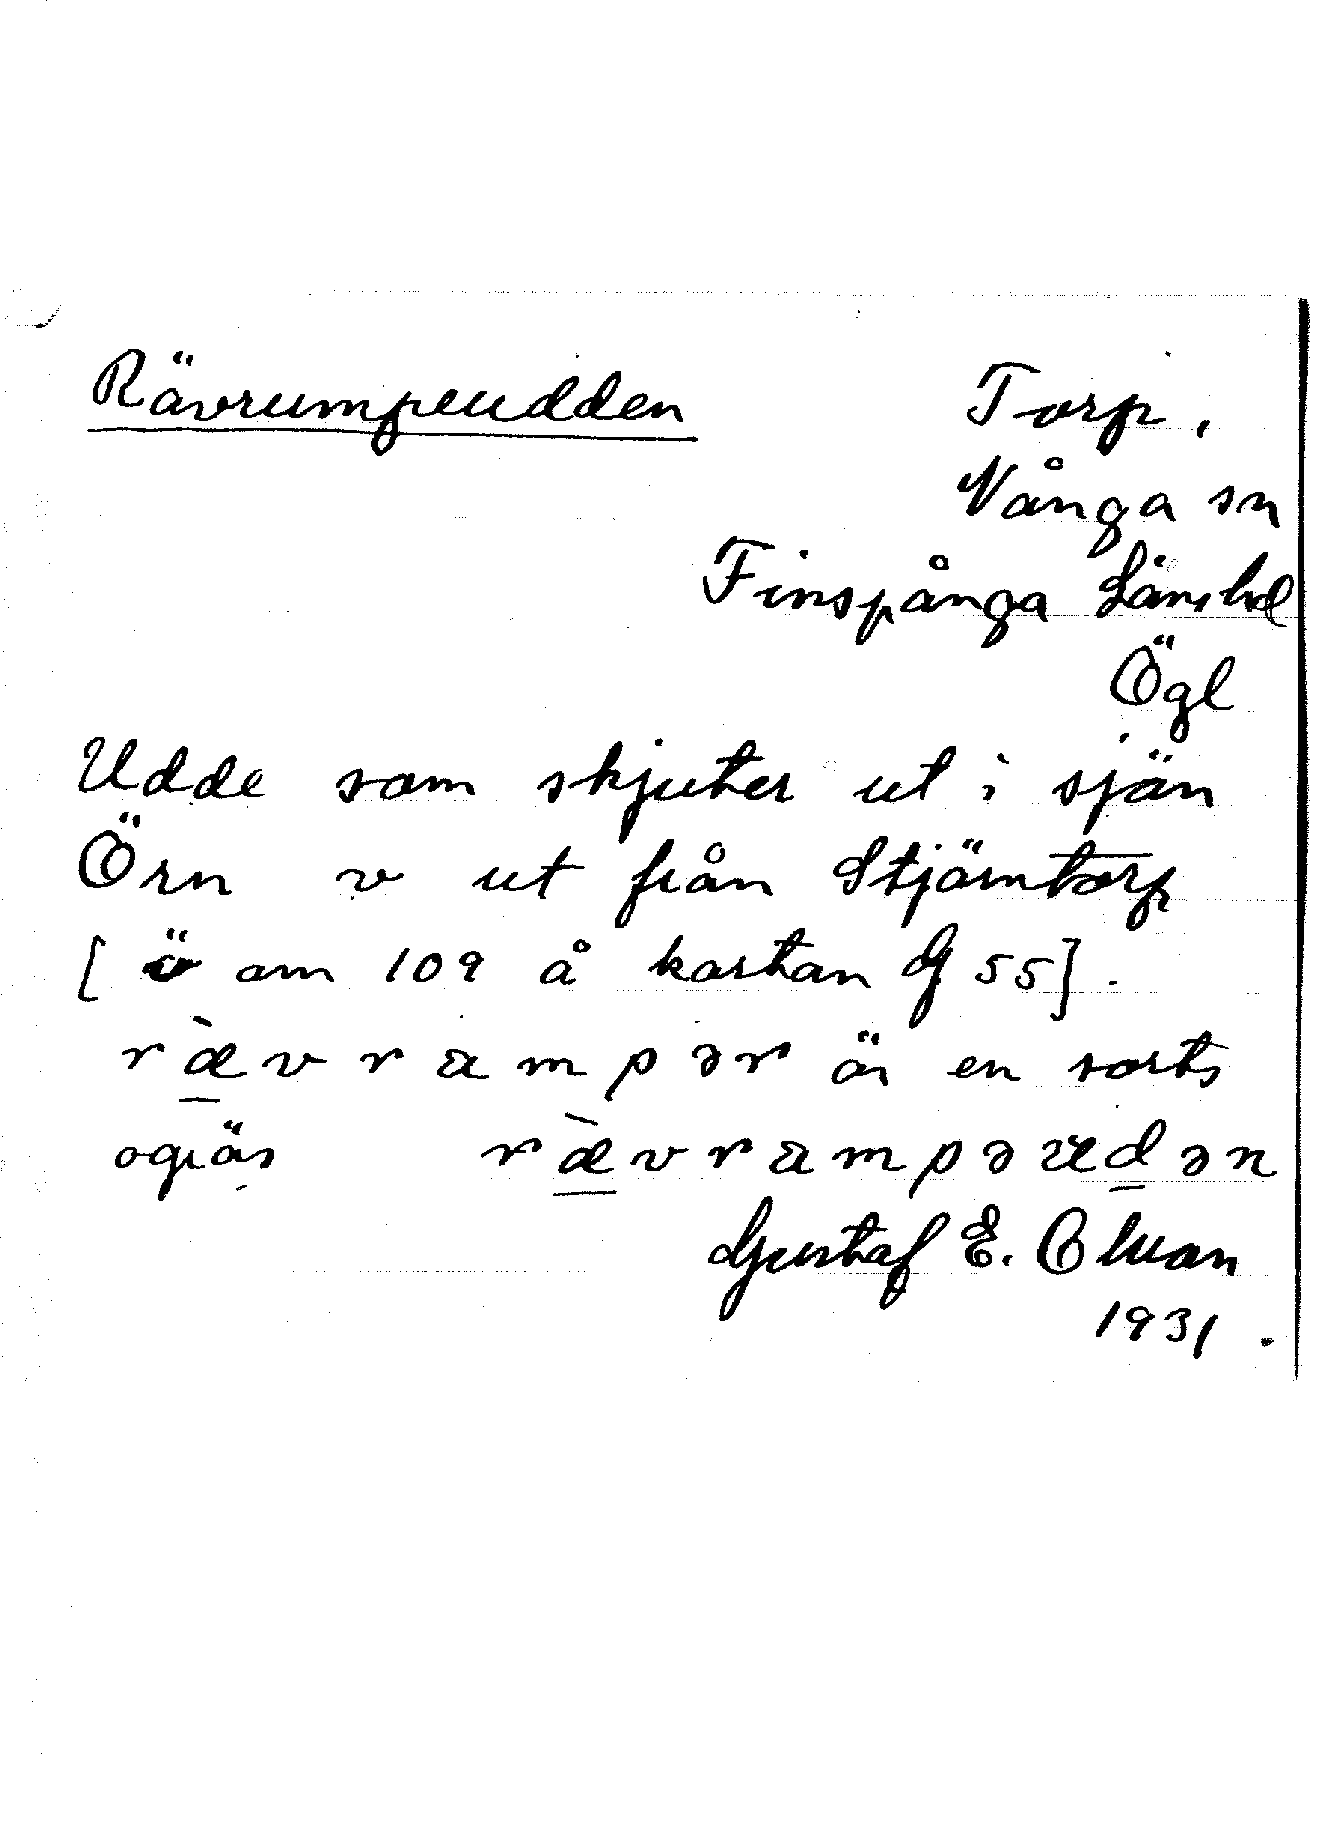 Rävrumpeudden
Torp,
Vånga sn
Finspånga Läns hd
Ögl
Udde som skjuter ut i sjön
Örn v ut från Stjärntorp
[ ö om 109 å kartan G 55].
ræ̀vrɑmpər är en sorts
ogräs ræ̀vrɑmpəudən
Gustaf E. Olson
1931.